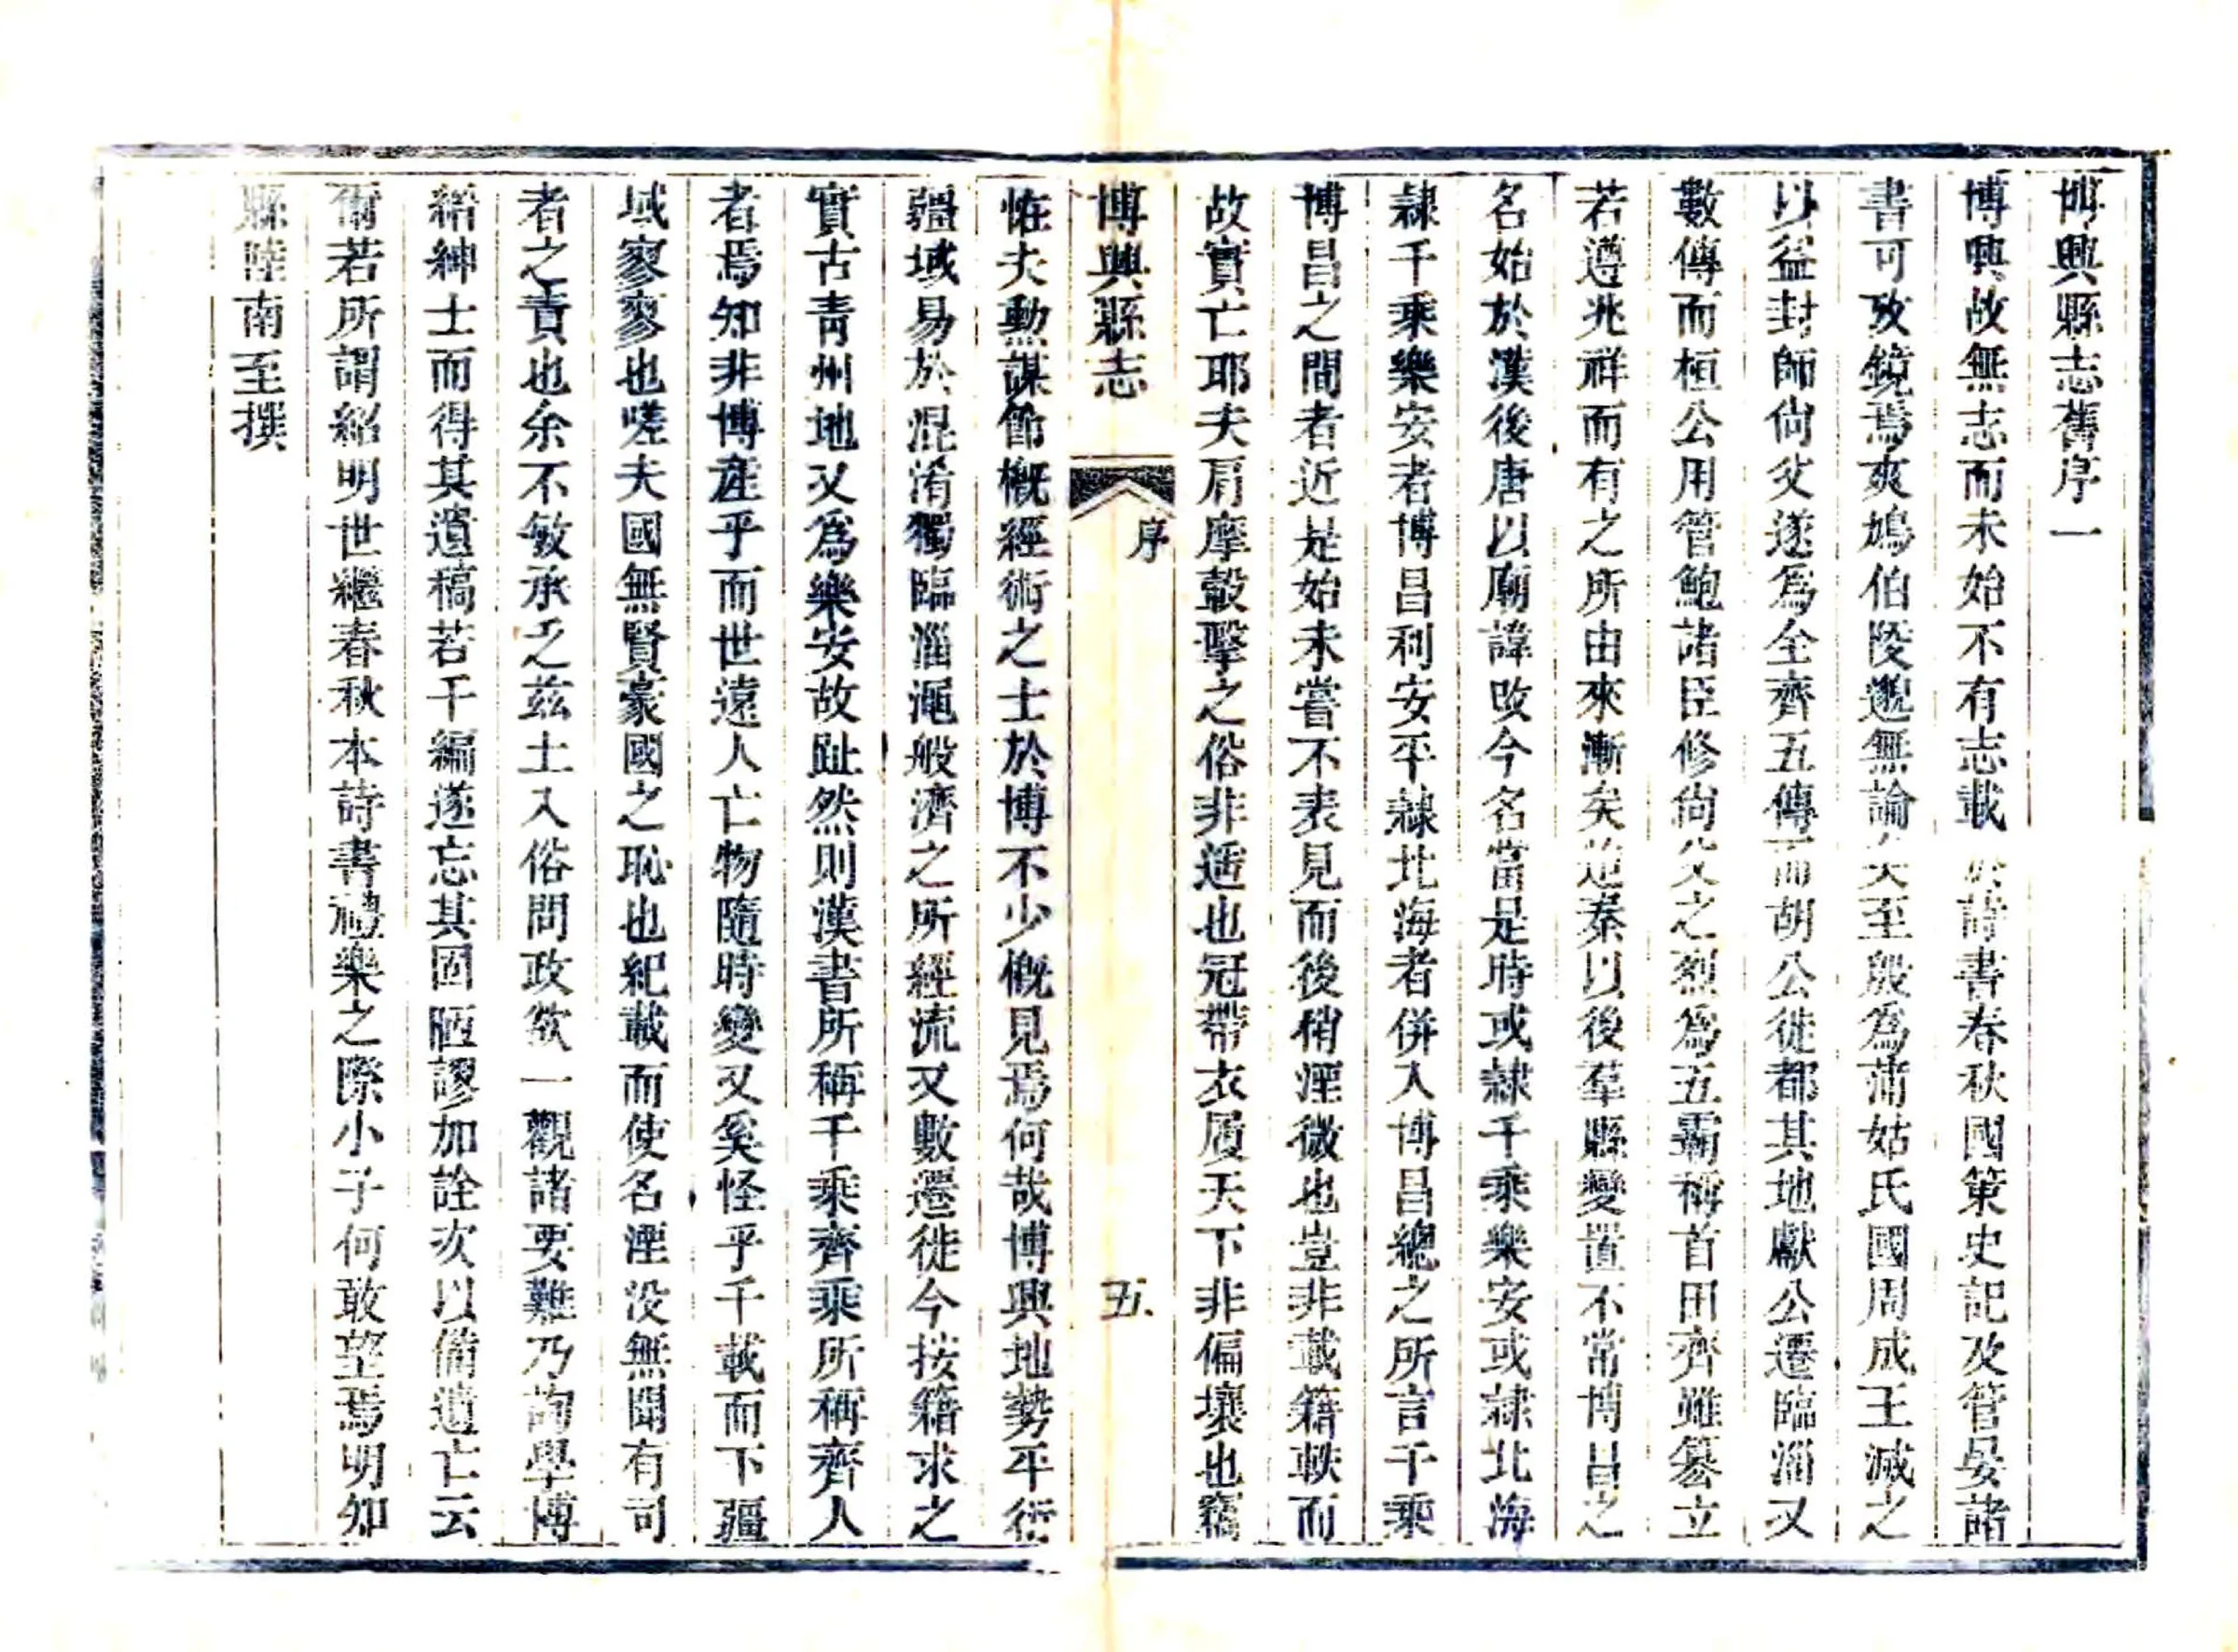 博興縣志舊序一
博興故無志而未始不有志載於詩書春秋國策史記及管晏諸
書可攷鏡焉爽鳩伯陵邈無論矣至殷為蒲姑氏國周成王滅之
以益封師尙父遂為全齊五傳而胡公徙都其地獻公遷臨淄又
數傳而桓公用管鮑諸臣修尙父之烈為五霸稱首田齊雖簒立
若遵兆祥而有之所由來漸矣迨秦以後羣縣變置不常博昌之
名始於漢後唐以廟諱改今名當是時或隸千乘樂安或隸北海
隸千乘樂安者博昌利安平隸北海者併入博昌總之所言千乘
博昌之間者近是始未嘗不表見而後稍湮微也豈非載籍軼而
故實亡耶夫肩摩轂擊之俗非適也冠帶衣履天下非偏壤也竊
博興縣志
序
五
恠夫勲謀節槪經術之士於博不少槪見焉何哉博興地勢平衍
疆域易於混淆獨臨淄澠般濟之所經流又數遷徙今按籍求之
實古靑州地又為樂安故趾然則漢書所稱千乘齊乘所稱齊人
者焉知非博産乎而世遠人亡物隨時變又奚怪乎千載而下疆
域寥寥也嗟夫國無賢豪國之恥也紀載而使名湮没無聞有司
者之責也余不敏承乏兹土入俗問政欲一觀諸要難乃詢學博
縉紳士而得其遺稿若干編遂忘其固陋謬加詮次以備遺亡云
爾若所謂紹明世繼春秋本詩書禮樂之際小子何敢望焉明知
縣陸南至撰